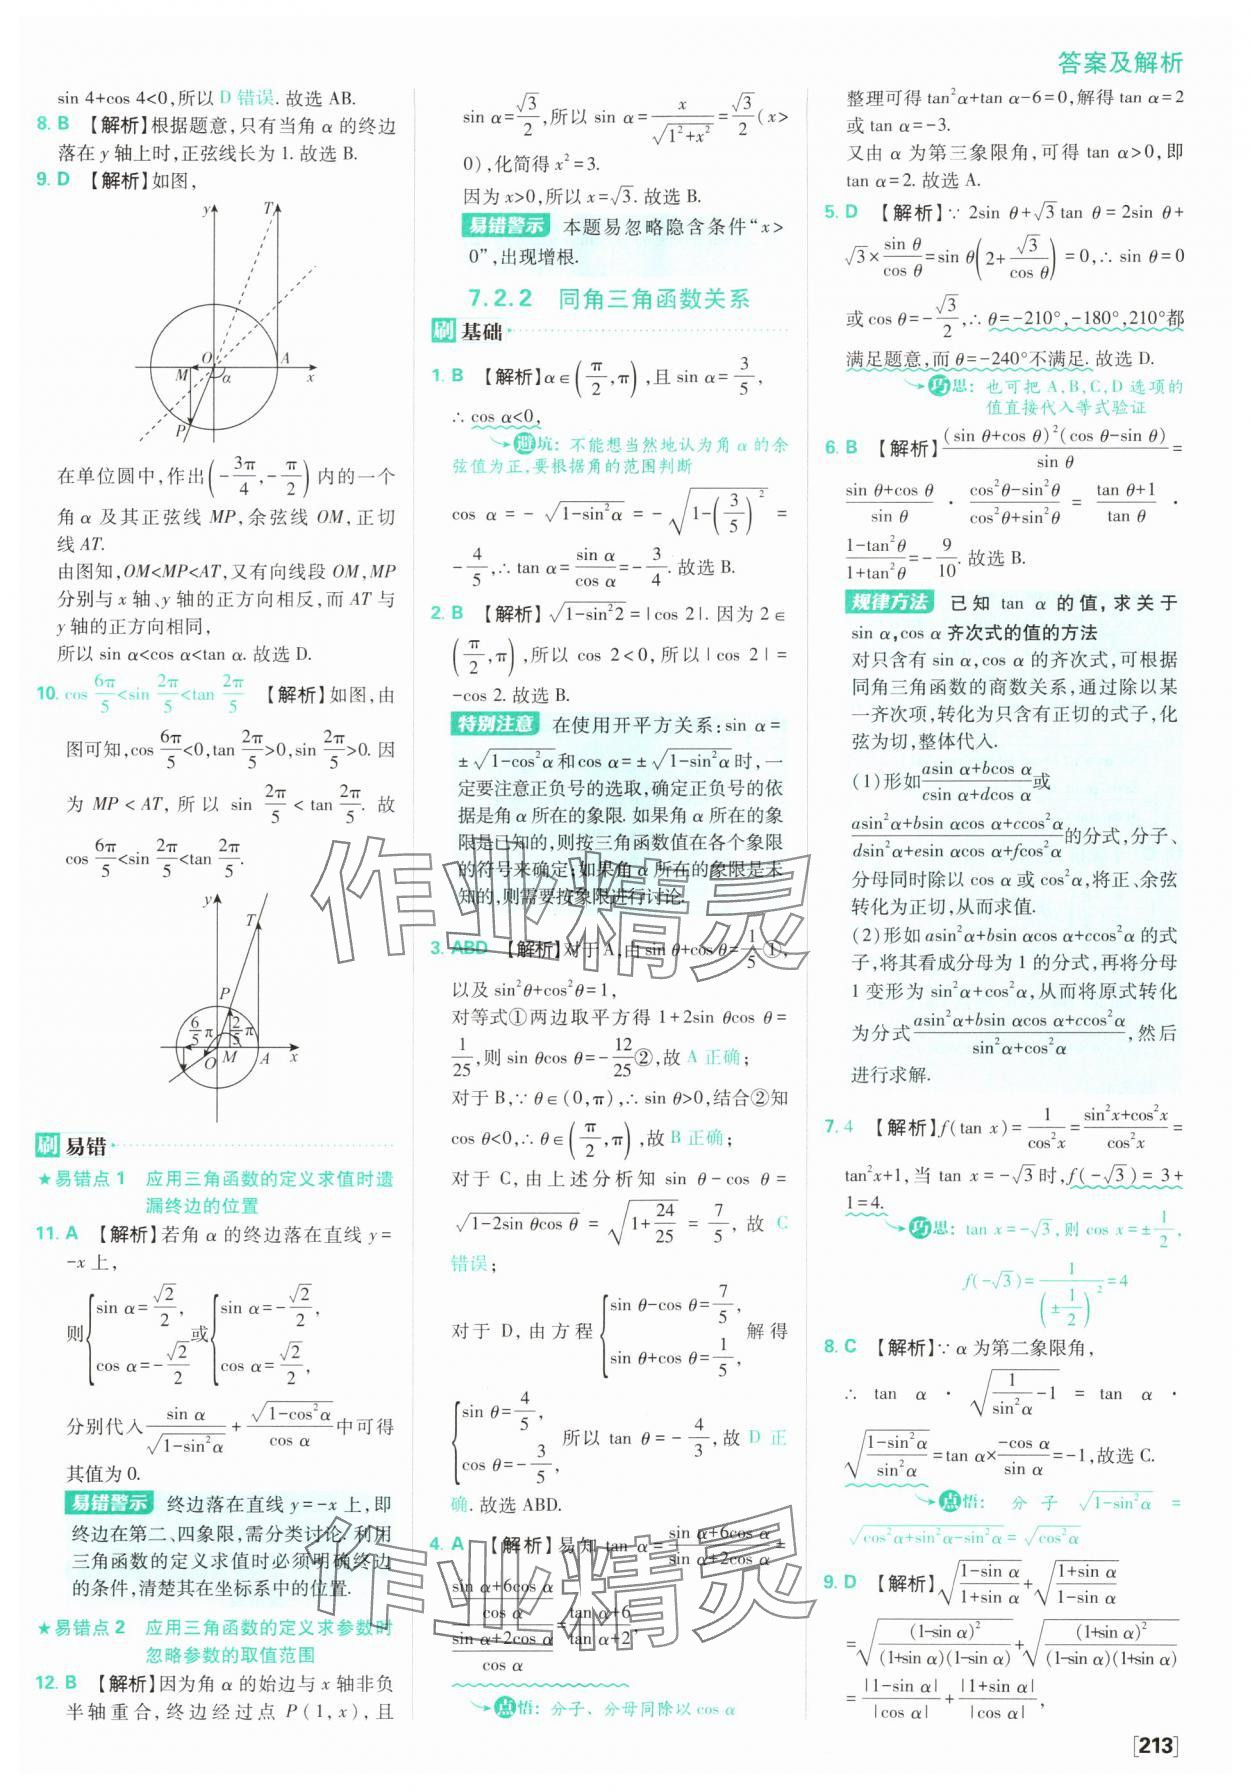 答案及解析
sin 4+cos 4<0,所以 D 错误. 故选 AB.
8. B 【解析】根据题意,只有当角 α 的终边
落在 y 轴上时,正弦线长为 1. 故选 B.
9. D 【解析】如图,
y T
O A
M α x
P
在单位圆中,作出(-3π/4,-π/2)内的一个
角 α 及其正弦线 MP,余弦线 OM,正切
线 AT.
由图知,OM<MP<AT,又有向线段 OM,MP
分别与 x 轴、y 轴的正方向相反,而 AT 与
y 轴的正方向相同,
所以 sin α<cos α<tan α. 故选 D.
10. cos 6π/5<sin 2π/5<tan 2π/5 【解析】如图,由
图可知,cos 6π/5<0,tan 2π/5>0,sin 2π/5>0. 因
为 MP<AT,所以 sin 2π/5<tan 2π/5. 故
cos 6π/5<sin 2π/5<tan 2π/5.
y
T
P
6/5 π 2/5 π
O M A x
刷 易错
★易错点 1 应用三角函数的定义求值时遗
漏终边的位置
11. A 【解析】若角 α 的终边落在直线 y=
-x 上,
则{sin α=√2/2, cos α=-√2/2 或{sin α=-√2/2, cos α=√2/2,
分别代入 sin α/√(1-sin²α)+√(1-cos²α)/cos α 中可得
其值为 0.
易错警示 终边落在直线 y=-x 上,即
终边在第二、四象限,需分类讨论. 利用
三角函数的定义求值时必须明确终边
的条件,清楚其在坐标系中的位置.
★易错点 2 应用三角函数的定义求参数时
忽略参数的取值范围
12. B 【解析】因为角 α 的始边与 x 轴非负
半轴重合,终边经过点 P(1,x),且
sin α=√3/2,所以 sin α=x/√(1²+x²)=√3/2(x>
0),化简得 x²=3.
因为 x>0,所以 x=√3. 故选 B.
易错警示 本题易忽略隐含条件“x>
0”,出现增根.
7.2.2 同角三角函数关系
刷 基础
1. B 【解析】α∈(π/2,π),且 sin α=3/5,
∴ cos α<0,
避坑: 不能想当然地认为角 α 的余
弦值为正,要根据角的范围判断
cos α = -√(1-sin²α) = -√(1-(3/5)²) =
-4/5,∴ tan α=sin α/cos α=-3/4. 故选 B.
2. B 【解析】√(1-sin²2)=|cos 2|. 因为 2∈
(π/2,π),所以 cos 2<0,所以|cos 2|=
-cos 2. 故选 B.
特别注意 在使用开平方关系:sin α=
±√(1-cos²α)和 cos α=±√(1-sin²α)时,一
定要注意正负号的选取,确定正负号的依
据是角 α 所在的象限. 如果角 α 所在的象
限是已知的,则按三角函数值在各个象限
的符号来确定;如果角 α 所在的象限是未
知的,则需要按象限进行讨论.
3. ABD 【解析】对于 A,由 sin θ+cos θ=1/5①,
以及 sin²θ+cos²θ=1,
对等式①两边取平方得 1+2sin θcos θ=
1/25,则 sin θcos θ=-12/25②,故 A 正确;
对于 B,∵ θ∈(0,π),∴ sin θ>0,结合②知
cos θ<0,∴ θ∈(π/2,π),故 B 正确;
对于 C,由上述分析知 sin θ-cos θ=
√(1-2sin θcos θ) = √(1+24/25) = 7/5,故 C
错误;
对于 D,由方程{sin θ-cos θ=7/5, sin θ+cos θ=1/5, 解得
{sin θ=4/5, cos θ=-3/5, 所以 tan θ=-4/3,故 D 正
确. 故选 ABD.
4. A 【解析】易知 tan α=(sin α+6cos α)/(sin α+2cos α)=
((sin α+6cos α)/cos α)/((sin α+2cos α)/cos α)=(tan α+6)/(tan α+2),
点悟: 分子、分母同除以 cos α
整理可得 tan²α+tan α-6=0,解得 tan α=2
或 tan α=-3.
又由 α 为第三象限角,可得 tan α>0,即
tan α=2. 故选 A.
5. D 【解析】∵ 2sin θ+√3tan θ=2sin θ+
√3×sin θ/cos θ=sin θ(2+√3/cos θ)=0,∴ sin θ=0
或 cos θ=-√3/2,∴ θ=-210°,-180°,210°都
满足题意,而 θ=-240°不满足. 故选 D.
巧思: 也可把 A,B,C,D 选项的
值直接代入等式验证
6. B 【解析】(sin θ+cos θ)²(cos θ-sin θ)/sin θ=
(sin θ+cos θ)/sin θ · (cos²θ-sin²θ)/(cos²θ+sin²θ) = (tan θ+1)/tan θ ·
(1-tan²θ)/(1+tan²θ)=-9/10. 故选 B.
规律方法 已知 tan α 的值,求关于
sin α,cos α 齐次式的值的方法
对只含有 sin α,cos α 的齐次式,可根据
同角三角函数的商数关系,通过除以某
一齐次项,转化为只含有正切的式子,化
弦为切,整体代入.
(1)形如(asin α+bcos α)/(csin α+dcos α)或
(asin²α+bsin αcos α+ccos²α)/(dsin²α+esin αcos α+fcos²α)的分式,分子、
分母同时除以 cos α 或 cos²α,将正、余弦
转化为正切,从而求值.
(2)形如 asin²α+bsin αcos α+ccos²α 的式
子,将其看成分母为 1 的分式,再将分母
1 变形为 sin²α+cos²α,从而将原式转化
为分式(asin²α+bsin αcos α+ccos²α)/(sin²α+cos²α),然后
进行求解.
7. 4 【解析】f(tan x)=1/cos²x=(sin²x+cos²x)/cos²x=
tan²x+1,当 tan x=-√3时,f(-√3)=3+
1=4.
巧思: tan x=-√3,则 cos x=±1/2,
f(-√3)=1/(±1/2)²=4
8. C 【解析】∵ α 为第二象限角,
∴ tan α · √(1/sin²α-1) = tan α ·
√((1-sin²α)/sin²α)=tan α×(-cos α)/sin α=-1,故选 C.
点悟: 分子 √(1-sin²α) =
√(cos²α+sin²α-sin²α)=√(cos²α)
9. D 【解析】√((1-sin α)/(1+sin α))+√((1+sin α)/(1-sin α))
=√((1-sin α)²/((1+sin α)(1-sin α)))+√((1+sin α)²/((1-sin α)(1+sin α)))
=|1-sin α|/|cos α|+|1+sin α|/|cos α|,
[213]
作业精灵
作业精灵